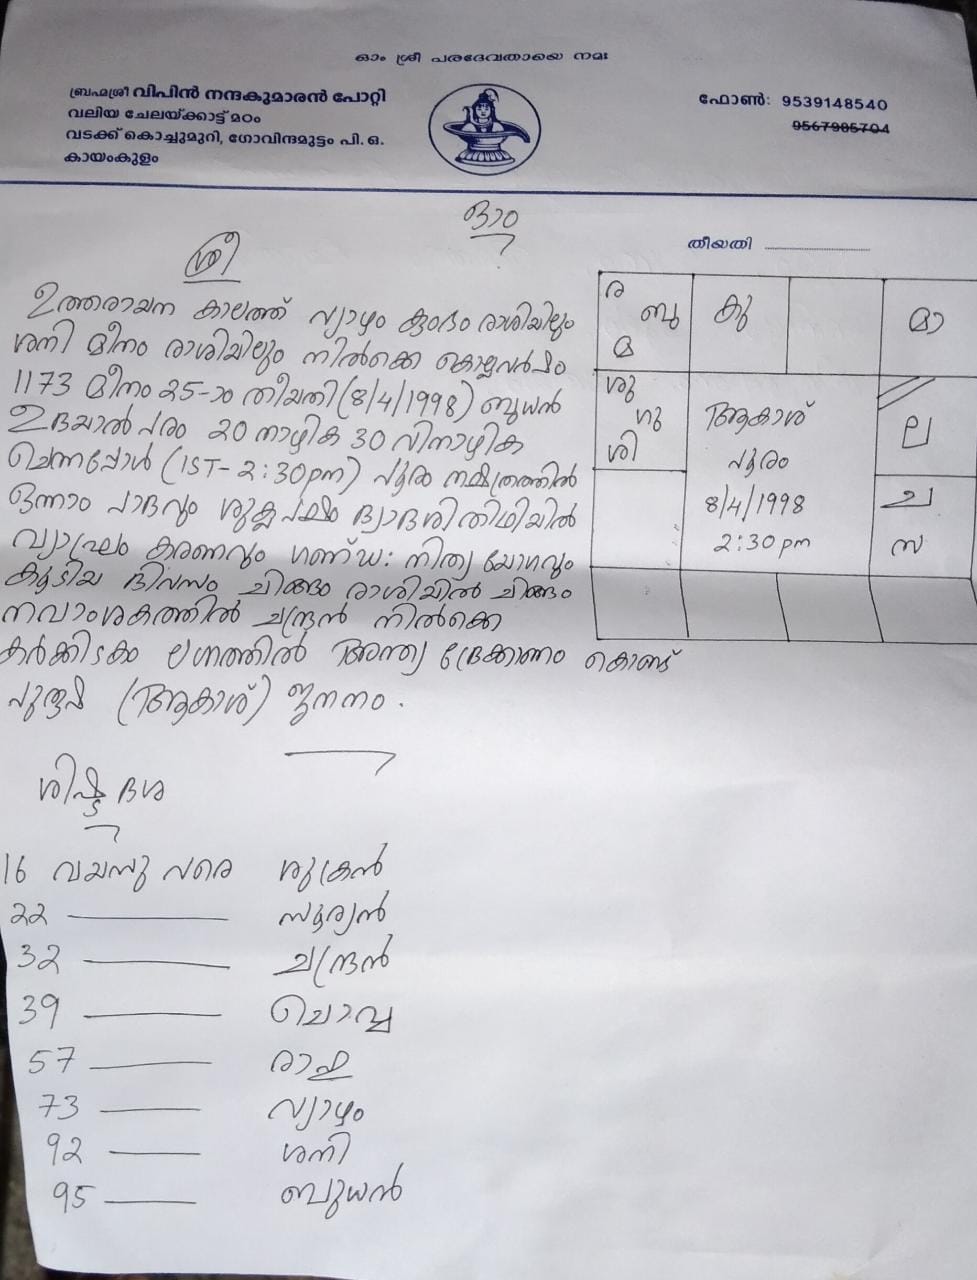 ഓം ശ്രീ പരദേവതായൈ നമഃ
ബ്രഹ്മശ്രീ വിപിൻ നന്ദകുമാരൻ പോറ്റി
വലിയ ചേലയ്ക്കാട്ട് മഠം
വടക്ക് കൊച്ചുമുറി, ഗോവിന്ദമുട്ടം പി. ഒ.
കായംകുളം
ഫോൺ: 9539148540
9567905704
ഓം
തീയതി
ശ്രീ
ഉത്തരായന കാലത്ത് വ്യാഴം കുംഭം രാശിയിലും
ശനി മീനം രാശിയിലും നിൽക്കെ കൊല്ലവർഷം
1173 മീനം 25-ാം തീയതി (8/4/1998) ബുധൻ
ഉദയാൽപരം 20 നാഴിക 30 വിനാഴിക
ചെന്നപ്പോൾ (IST- 2:30pm) പൂരം നക്ഷത്രത്തിൽ
ഒന്നാം പാദവും ശുക്ലപക്ഷം ദ്വാദശി തിഥിയിൽ
വ്യാഘ്രം കരണവും ഗണ്ഡ: നിത്യ യോഗവും
കൂടിയ ദിവസം ചിങ്ങം രാശിയിൽ ചിങ്ങം
നവാംശകത്തിൽ ചന്ദ്രൻ നിൽക്കെ
കർക്കിടകം ലഗ്നത്തിൽ അന്ത്യ ദ്രേക്കാണം കൊണ്ട്
പുരുഷ (ആകാശ്) ജനനം.
ര ബു കു മാ
മ
ശു
ഗു ആകാശ് ല
ശി
പൂരം
8/4/1998 ച
2:30 pm സ
ശിഷ്ട ദശ
16 വയസു വരെ ശുക്രൻ
22 സൂര്യൻ
32 ചന്ദ്രൻ
39 ചൊവ്വ
57 രാഹു
73 വ്യാഴം
92 ശനി
95 ബുധൻ